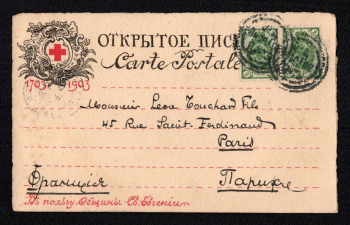 ОТКРЫТОЕ ПИС
Carte Postale
1703 1903
Monsieur Leon Touchard Fils
45 Rue Saint-Ferdinand
Paris
Франція Парижъ
Въ пользу Общины Св. Евгеніи